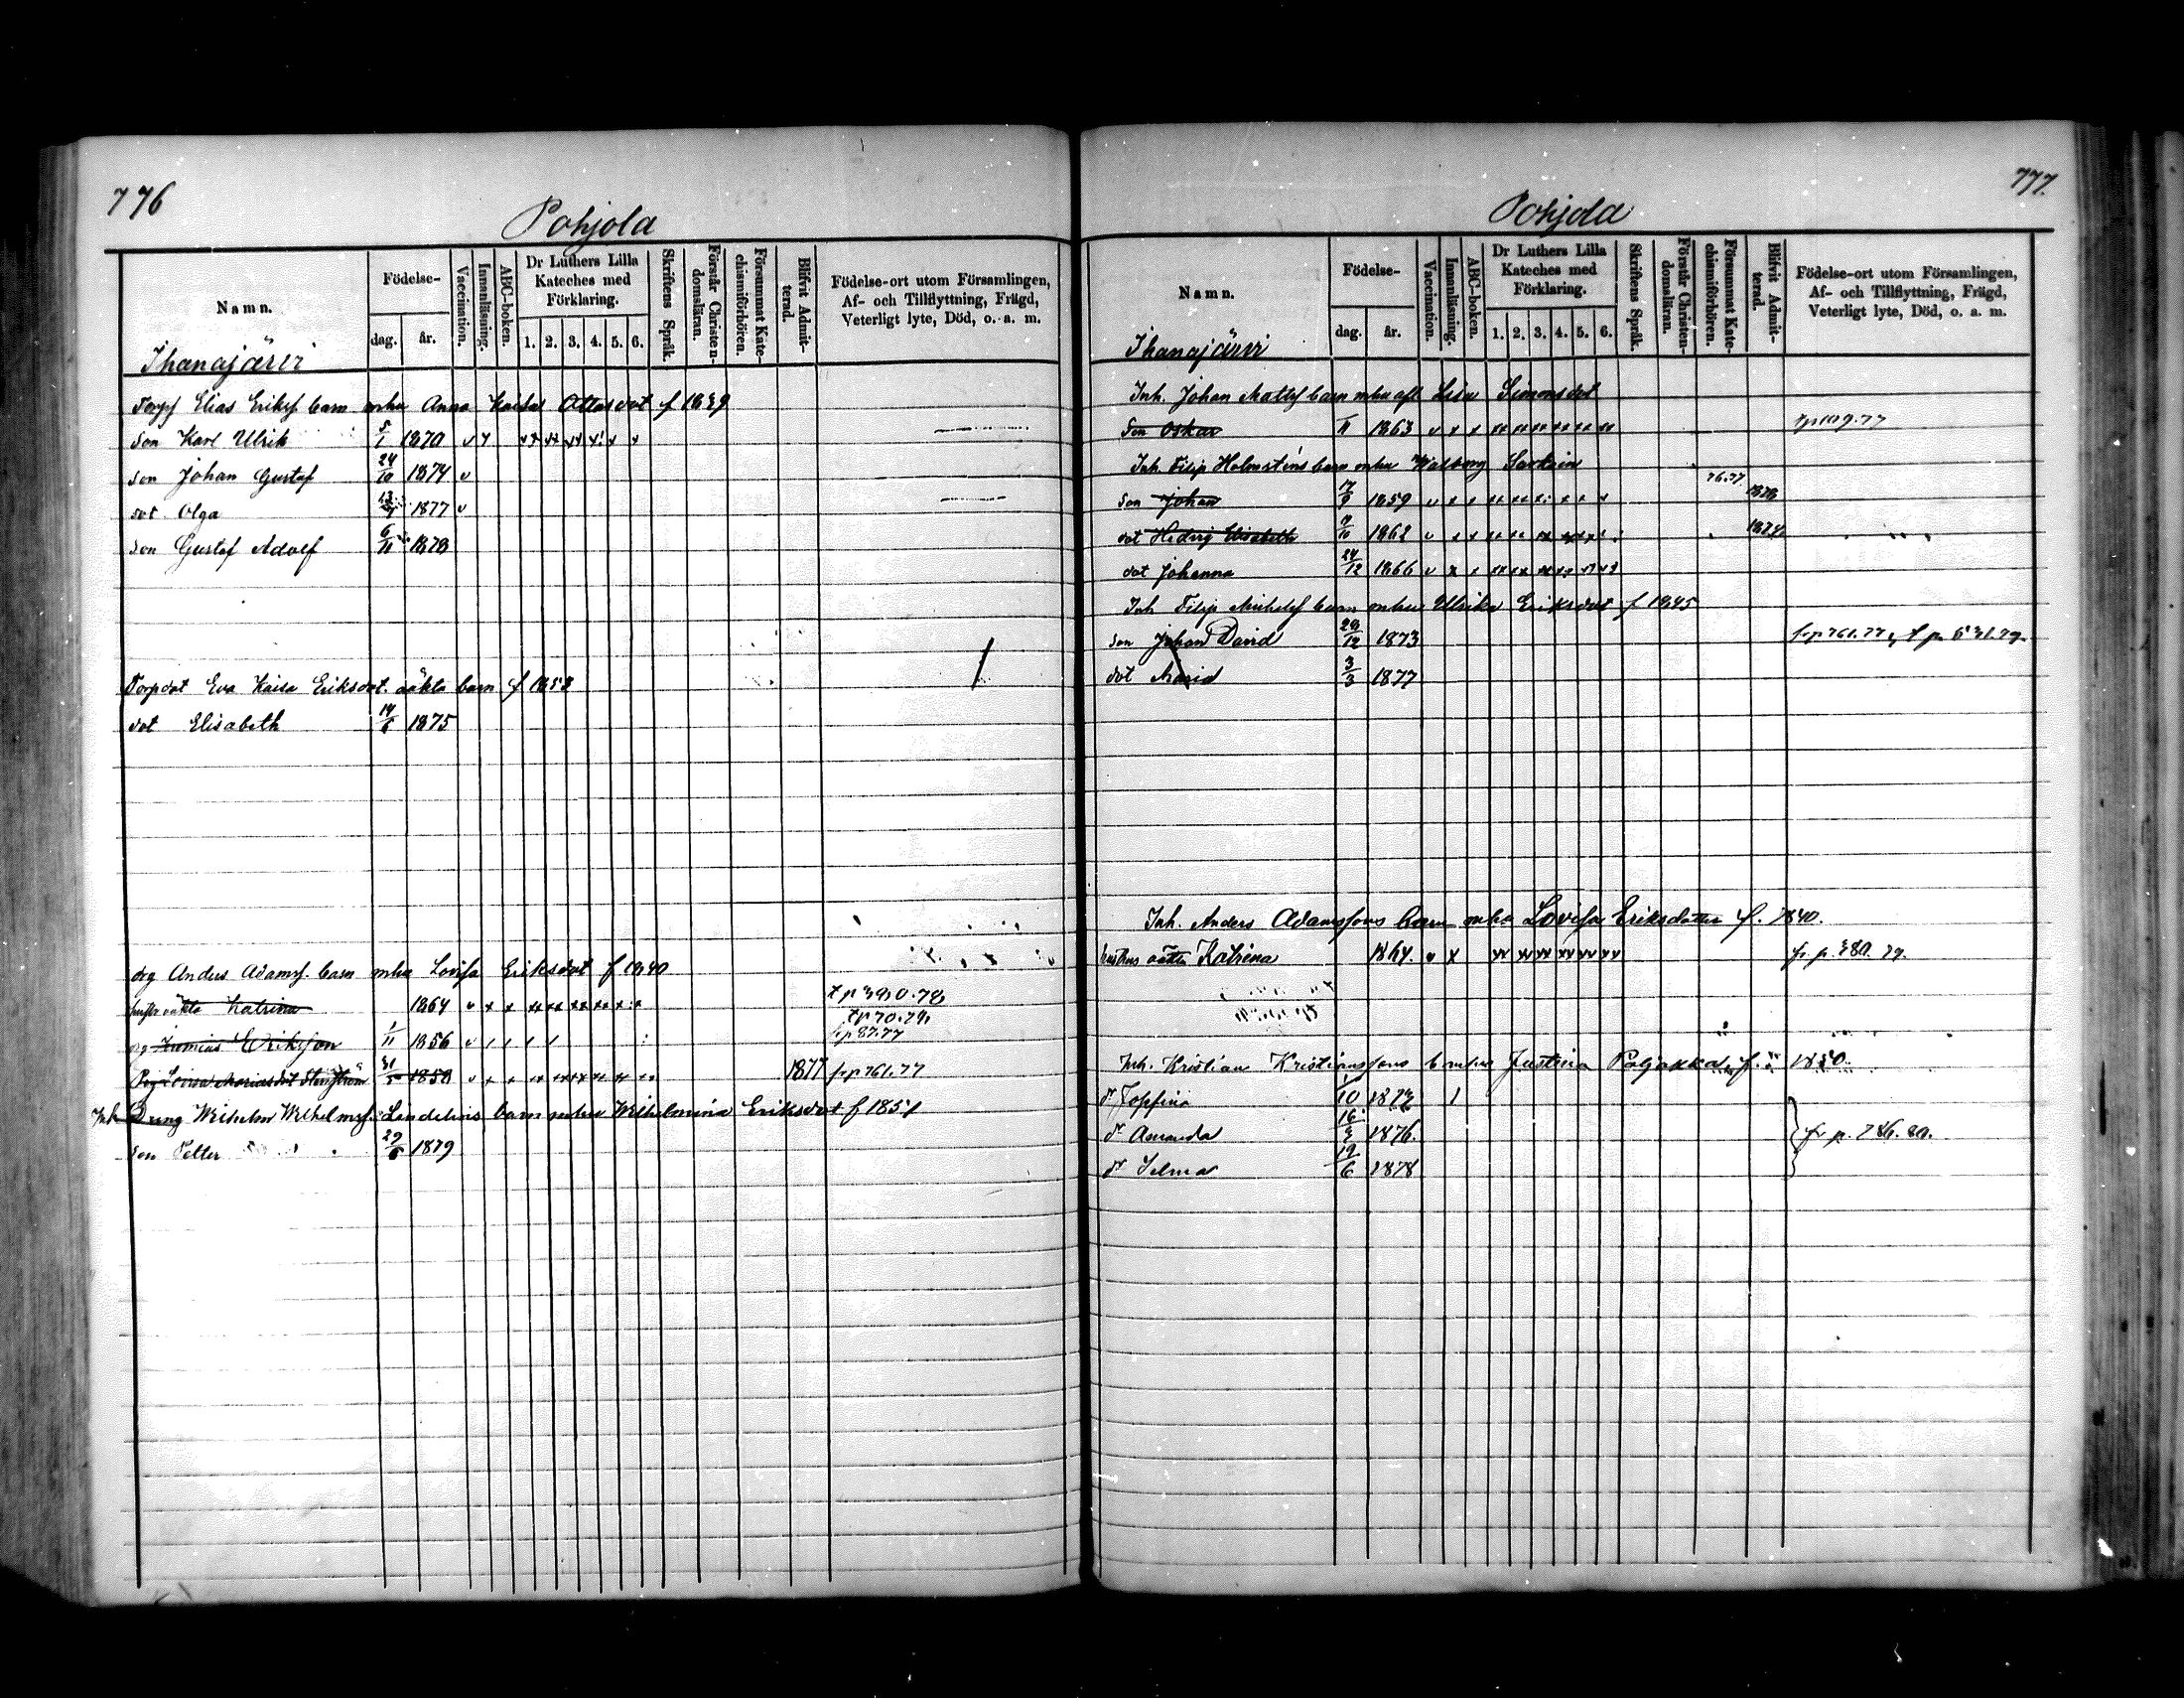 776
Pohjola
Namn.
Födelse-
dag.
år.
Vaccination.
Innanläsning.
ABC-boken.
Dr Luthers Lilla Kateches med Förklaring.
1. 2. 3. 4. 5. 6.
Skriftens Språk.
Förstår Christendomsläran.
Försummat Katechismiförhören.
Blifvit Admitterad.
Födelse-ort utom Församlingen,
Af- och Tillflyttning, Frägd,
Veterligt lyte, Död, o. a. m.
Ihanajärvi
Torp Elias Eriksf barn mhu Anna Kaisa Ottosdot f 1839
son Karl Ulrik 5/1 1870
son Johan Gustaf 24/10 1874
dot Olga 1877
son Gustaf Adolf 6/11 1878
Torpdot Eva Kaisa Eriksdot oäkta barn f 1853
dot Elisabeth 14/6 1875
drg Anders Adamsf. barn mhu Lovisa Eriksdot f 1840
oäkta Katrina 1864 t p 390.78
t p 70.79.
drg Eriksson 1/11 1856 fr p 87.77
Pig Lovisa Mariasdot 1858 1877 fr p 761.77
Inh Dreng Wilhelm Wilhelmsf. Lindelius barn mhu Wilhelmina Eriksdot f 1851
son Petter 29/6 1879
777.
Pohjola
Namn.
Födelse-
dag.
år.
Vaccination.
Innanläsning.
ABC-boken.
Dr Luthers Lilla Kateches med Förklaring.
1. 2. 3. 4. 5. 6.
Skriftens Språk.
Förstår Christendomsläran.
Försummat Katechismiförhören.
Blifvit Admitterad.
Födelse-ort utom Församlingen,
Af- och Tillflyttning, Frägd,
Veterligt lyte, Död, o. a. m.
Ihanajärvi
Inh. Johan Mattsf barn mhu afl Lisa Simonsdot
Son Oskar 1863
Inh. Filip Holmsténs barn mhu Walborg
76.77.
son Johan 17/9 1859 1878
dot Hedvig Elisabeth 1862 1879
dot Johanna 24/12 1866
Inh Filip Michelsf barn mhu Ulrika Eriksdot f 1845
son Johan David 29/12 1873 fr p 761.77, t p 531.79.
dot Maria 3/3 1877
Inh. Anders Adamssons barn mhu Lovisa Eriksdotter f. 1840.
hustrus oäkta Katrina 1864. fr. p. 380. 79.
Inh. Kristian Kristianssons b mhu Justina Paljakka f. 1850.
dr Josefina 1/10 1873
dr Amanda 16/3 1876. fr p. 786.80.
dr Selma 19/6 1878